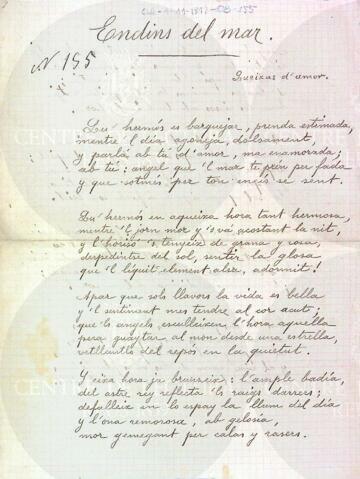 Endins del mar.
Nº 155
Queixas d'amor.
Qu' hermós es barquejar, prenda estimada,
mentre 'l dia agoneja, dolsament,
y parlá ab tú d'amor, ma enamorada;
ab tú: angel que 'l mar te prén per fada
y que sotmés per ton encís se sent.
Qu' hermós en aqueixa hora tant hermosa,
mentre 'l jorn mor y s'va acostant la nit,
y l'horisó 's tenyeix de grana y rosa,
despedintse del sol, sentir la glosa
que 'l líquit element alsa, adormit!
Apar que sols llavors la vida es bella
y 'l sentiment mes tendre al cor acut;
que 'ls angels, escullen, l'hora aquella
pera guaytar al mon desde una estrella,
vetllantlos del repós en la quietut.
Y eixa hora ja : l'ample badía,
del astre rey reflecta 'ls raigs darrers;
defalleix en lo espay la llum del día
y l'ona remorosa, ab gelosía,
mor gemegant per calas y rasers.